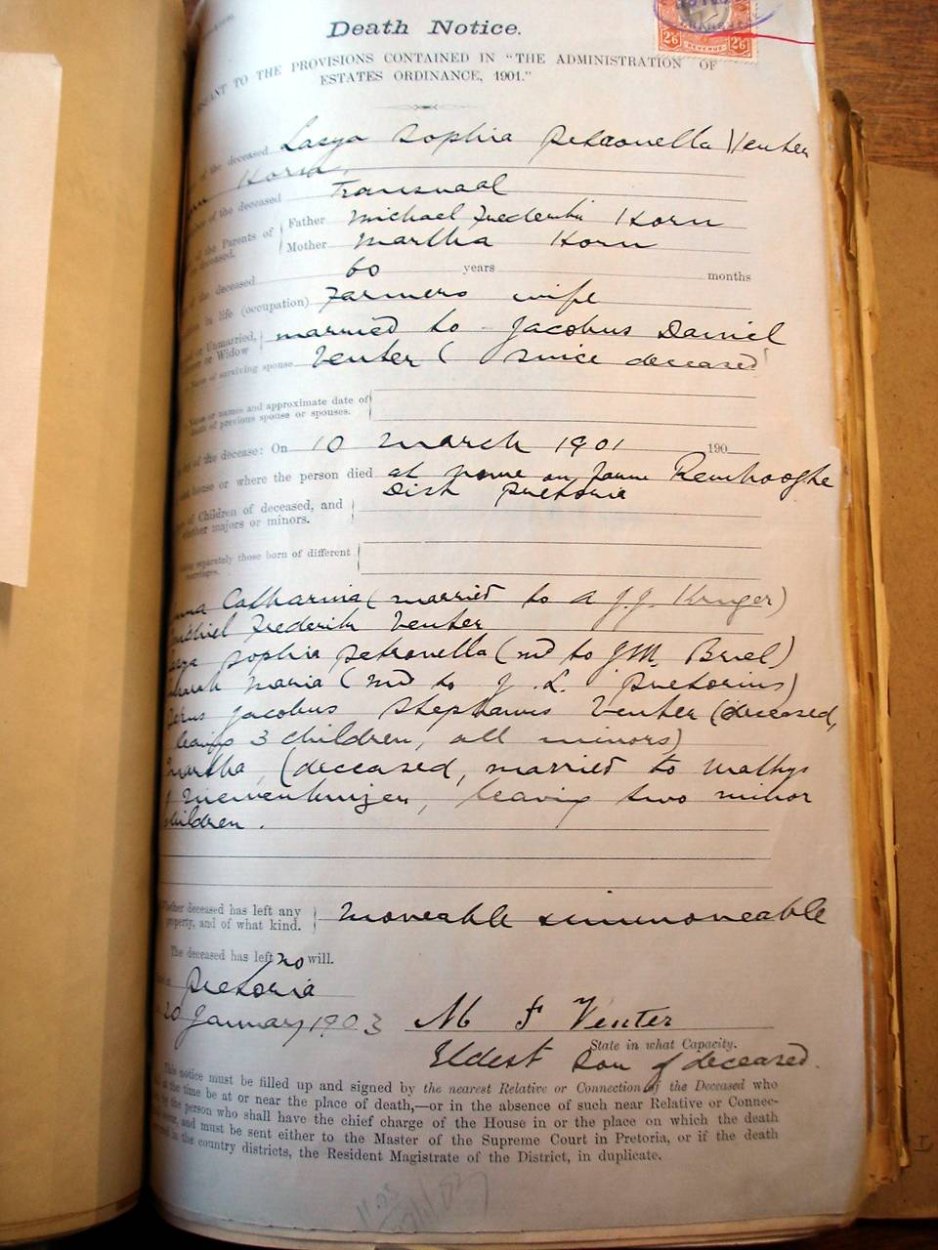 Death Notice.
TO THE PROVISIONS CONTAINED IN "THE ADMINISTRATION OF
ESTATES ORDINANCE, 1901."
2/6 REVENUE 2/6
of the deceased Lasya Sophia Petronella Venter
Horn
of the deceased Transvaal
the Parents of deceased. Father Michael Frederik Horn
Mother Martha Horn
of the deceased 60 years months
in life (occupation) Farmers wife
or Unmarried, or Widow married to Jacobus Daniel
Name of surviving spouse Venter ( since deceased
Name or names and approximate date of
death of previous spouse or spouses.
of the decease: On 10 March 1901 190
house or where the person died at home on farm
Dist Pretoria
of Children of deceased, and
whether majors or minors.
separately those born of different
marriages.
Catharina (married to A J.J. Kruger)
Frederik Venter
Sophia Petronella (md to J.M. Briel)
Maria (md to J. L. Pretorius)
Jacobus Stephanus Venter (deceased,
leavg 3 children, all minors)
Martha, (deceased, married to Mathys
Nieuwenhuizen, leaving two minor
children.
Whether deceased has left any
property, and of what kind. Moveable & immoveable
The deceased has left no will.
Pretoria
20 January 1903 M F Venter
State in what Capacity.
Eldest Son of deceased.
This notice must be filled up and signed by the nearest Relative or Connection of the Deceased who
at the time be at or near the place of death,—or in the absence of such near Relative or Connec-
by the person who shall have the chief charge of the House in or the place on which the death
and must be sent either to the Master of the Supreme Court in Pretoria, or if the death
in the country districts, the Resident Magistrate of the District, in duplicate.